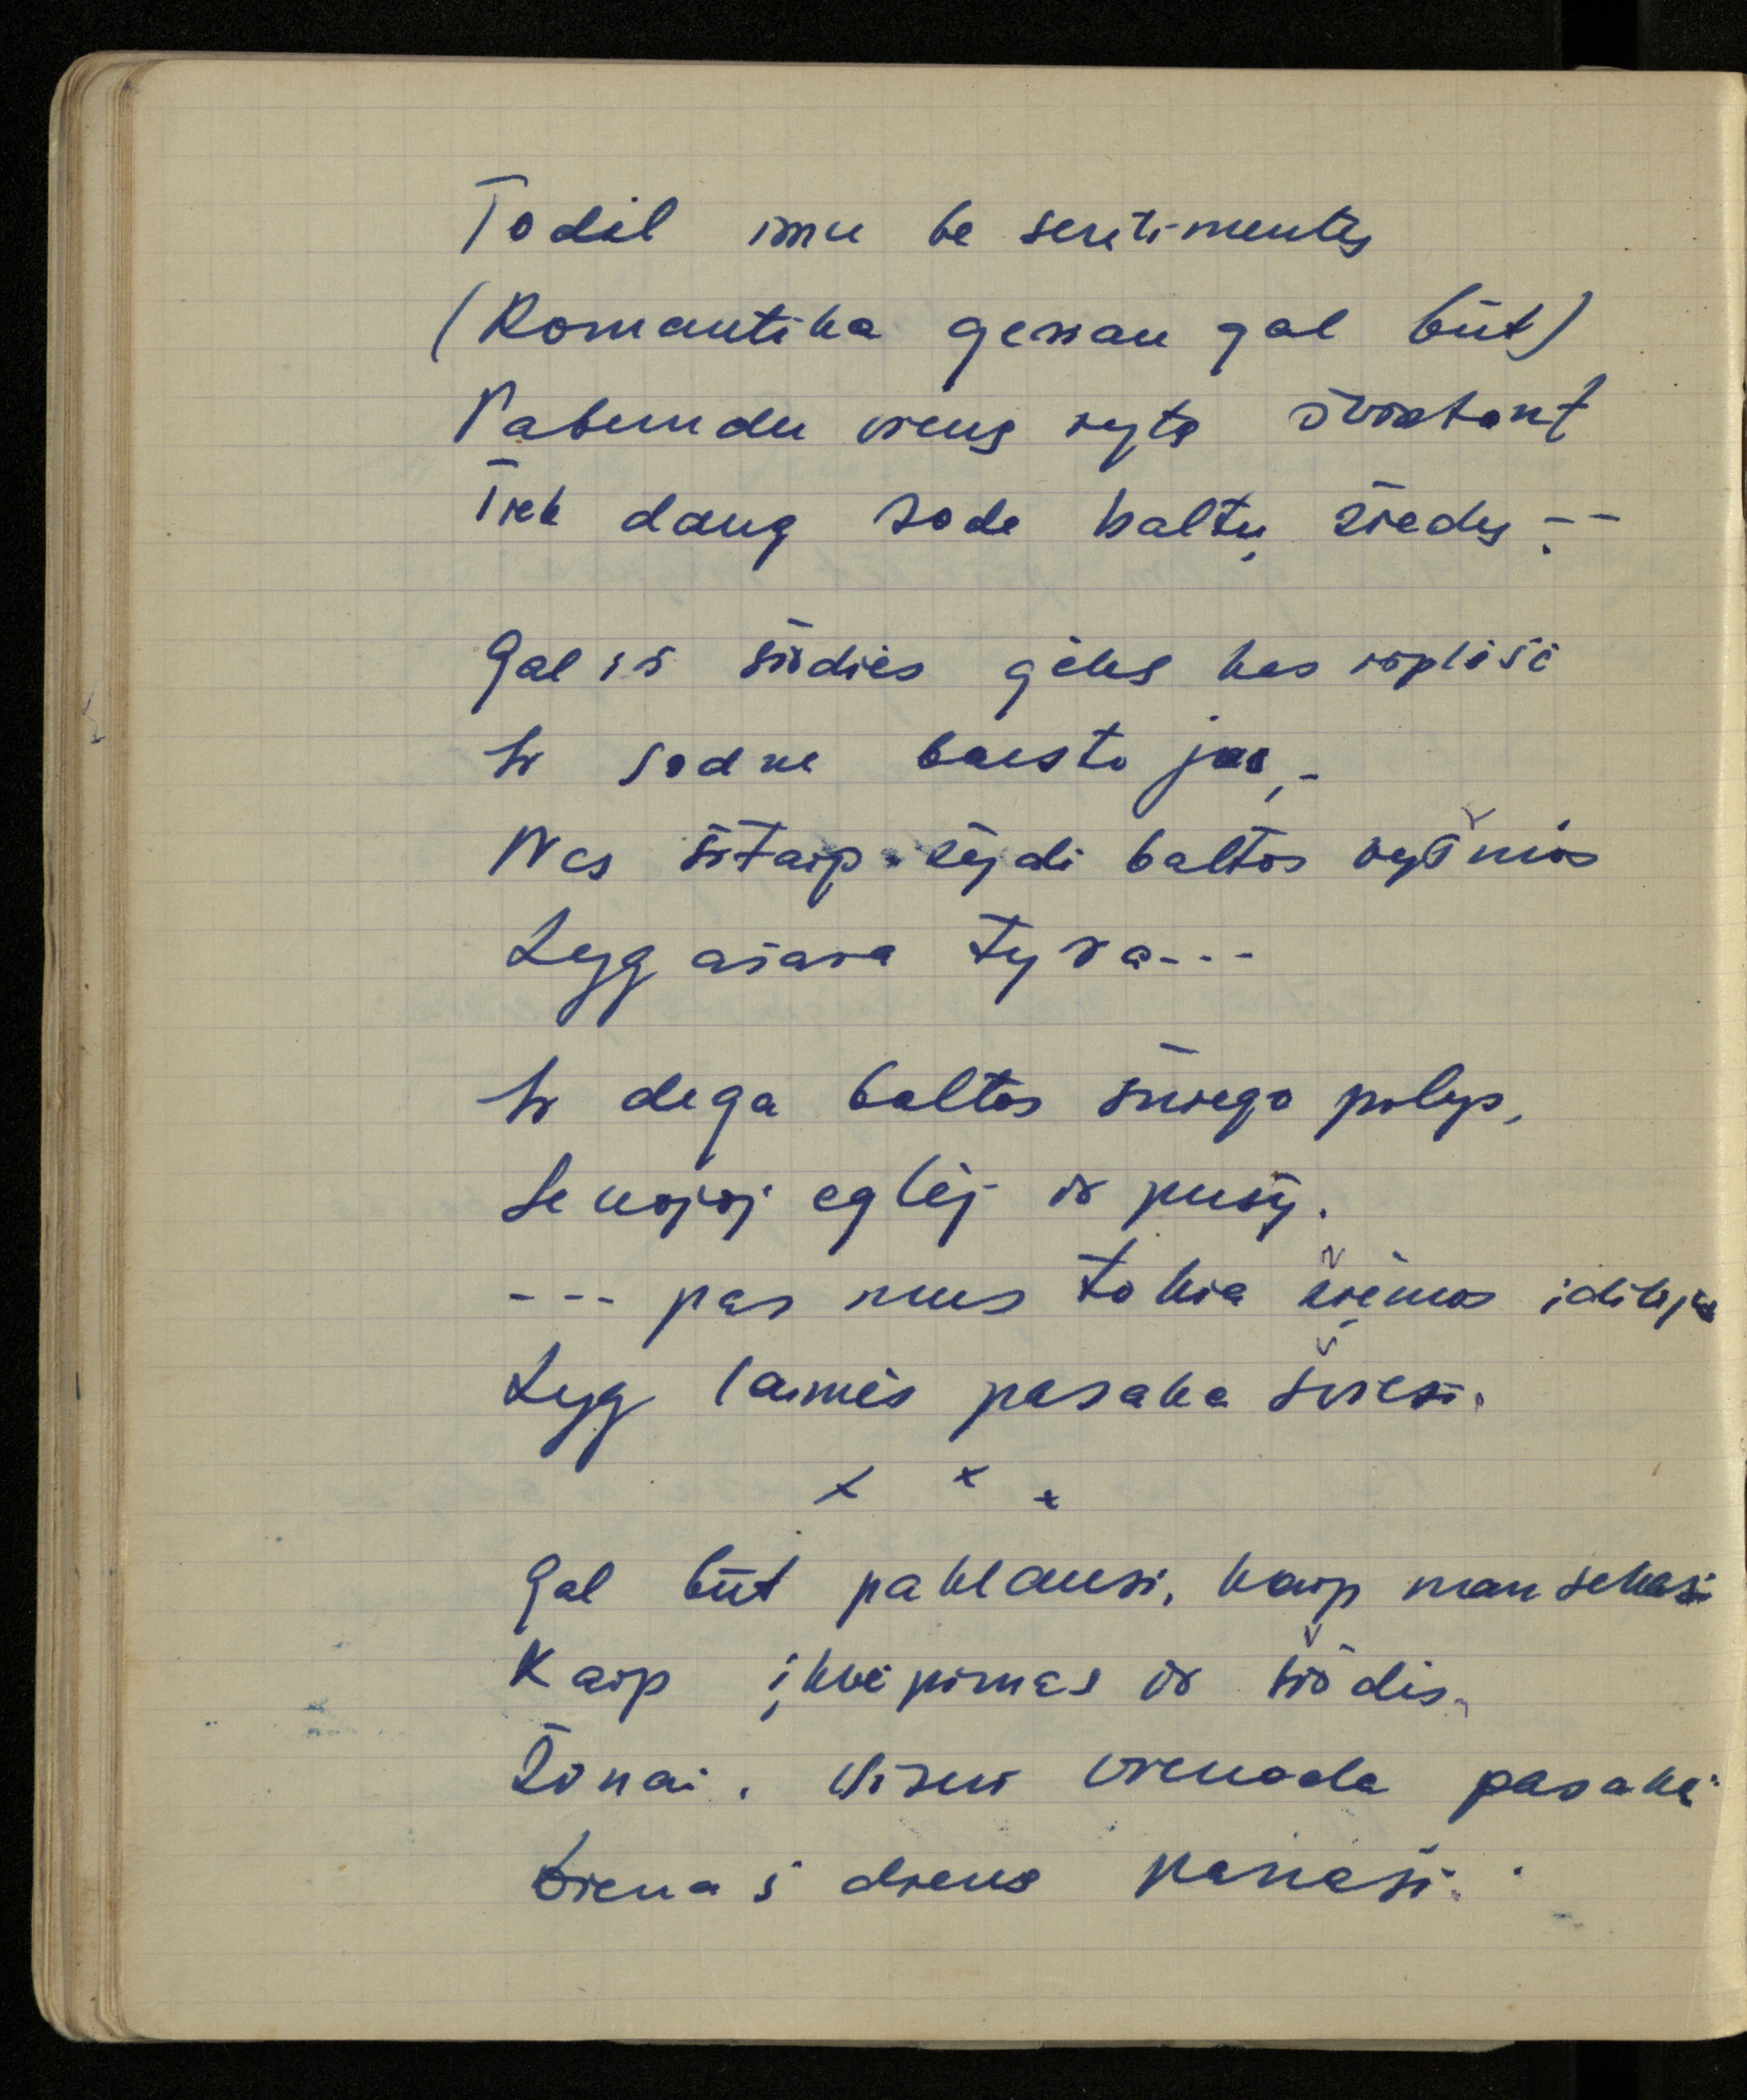 Todėl imu be sentimentų
(Romantika geriau gal būt)
Pabundu vieną rytą švintant
Tiek daug sode baltų žiedų --
Gal iš širdies gėles kas išplėšė
Ir sodne barsto jas, -
Nes šitaip žydi baltos vyšnios
Lyg ašara tyra---
Ir dega baltos sniego pelys,
Senojoj eglėj ir pušy.
--- pas mus tokia žiemos idilija
Lyg laimės pasaka šviesi.
x x x
Gal būt paklausi, kaip man sekasi
Kaip įkvėpimas ir širdis.
Žinai, visur vienoda pasaka
Diena į dieną panaši.